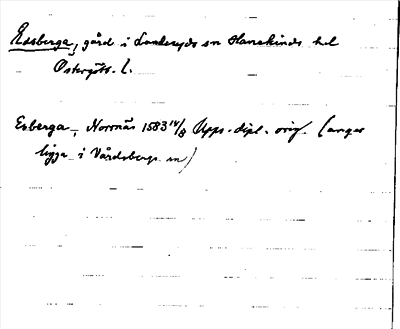 Edsberga, gård i Landeryds sn Hanekinds hd
Östergötl. l.
Esberga, Norrnäs 1583 14/8 Upps. dipl. orig. (anges
ligga i Vårdsbergs sn)